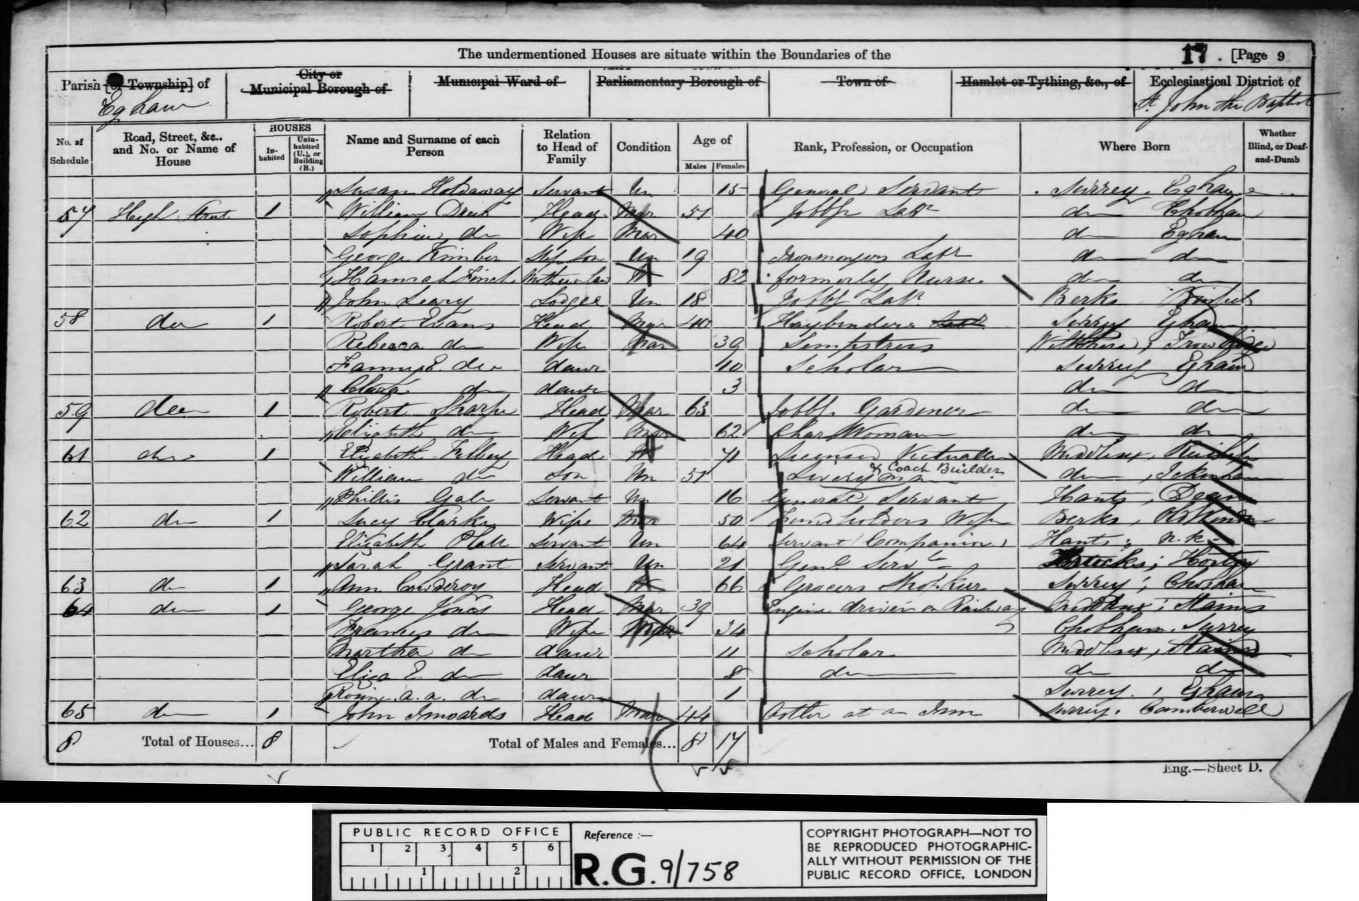 The undermentioned Houses are situate within the Boundaries of the
17 . [Page 9
Parish [or Township] of
City or
Municipal Borough of
Municipal Ward of
Parliamentary Borough of
Town of
Hamlet or Tything, &c., of
Ecclesiastical District of
Egham
St. John the Baptist
No. of Schedule
Road, Street, &c., and No. or Name of House
HOUSES
In-habited
Unin-habited (U.), or Building (B.)
Name and Surname of each Person
Relation to Head of Family
Condition
Age of
Males
Females
Rank, Profession, or Occupation
Where Born
Whether Blind, or Deaf-and-Dumb
Susan Holdaway Servant Un 15 General Servant Surrey Egham
57 High Street 1 William Head Mar 51 Labr do Chobham
Sophia do Wife Mar 40 do Egham
George Un 19 Ironmongers Labr do do
Hannah 82 formerly Nurse do do
John Leary Lodger Un 18 Labr Berks
58 do 1 Robert Evans Head Mar 40 Haybinder Surrey Egham
Rebecca do Wife Mar 39 Sempstress
Fanny E do daur 10 Scholar Surrey Egham
Clara do daur 3 do do
59 do 1 Robert Sharp Head Mar 63 Gardener do do
Elizabeth do Wife Mar 62 Char Woman do do
61 do 1 Elizabeth Head W 71 Licensed Victualler Middlesex
William do Son Un 51 & Coach Builder do Ickenham
Phillis Gale Servant Un 16 General Servant Hants
62 do 1 Lucy Clark Wife Mar 50 Fundholders Wife Berks
Elizabeth Servant Un 64 Servant Companion Hants n.k.
Sarah Grant Servant Un 21 Genl Servt
63 do 1 Ann Head W 66 Grocers Surrey Chobham
64 do 1 George Jones Head Mar 39 Engine driver on Railway Middlesex Staines
Frances do Wife 34 Chobham Surrey
Martha do daur 11 Scholar Middlesex Staines
Eliza E. do daur 8 do do do
a. a. do daur 1 Surrey Egham
65 do 1 John Head Mar 44 Ostler at an Inn Surrey Camberwell
8 Total of Houses... 8 Total of Males and Females... 8 17
Eng.—Sheet D.
PUBLIC RECORD OFFICE
1 2 3 4 5 6
1 2
Reference :—
R.G. 9/758
COPYRIGHT PHOTOGRAPH—NOT TO
BE REPRODUCED PHOTOGRAPHIC-
ALLY WITHOUT PERMISSION OF THE
PUBLIC RECORD OFFICE, LONDON